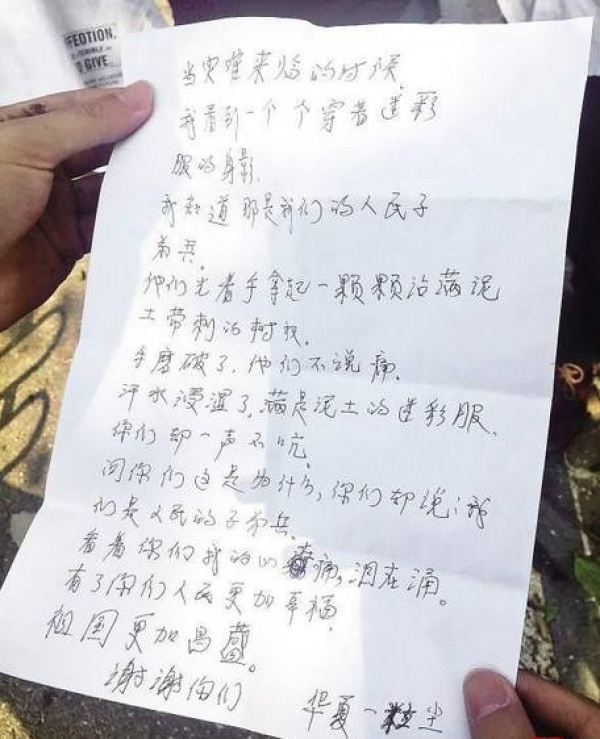 FECTION.
GIVE
当灾难来临的时候,
我看到一个个穿着迷彩
服的身影.
我知道那是我们的人民子
弟兵.
他们光着手拿起一颗颗沾满泥
土带刺的树杈.
手磨破了,他们不说痛.
汗水浸湿了,满是泥土的迷彩服.
你们却一声不吭.
问你们这是为什么,你们却说:我
们是人民的子弟兵.
看着你们我的心痛,泪在涌。
有了你们人民更加幸福,
祖国更加昌盛。
谢谢你们
华夏一粒尘